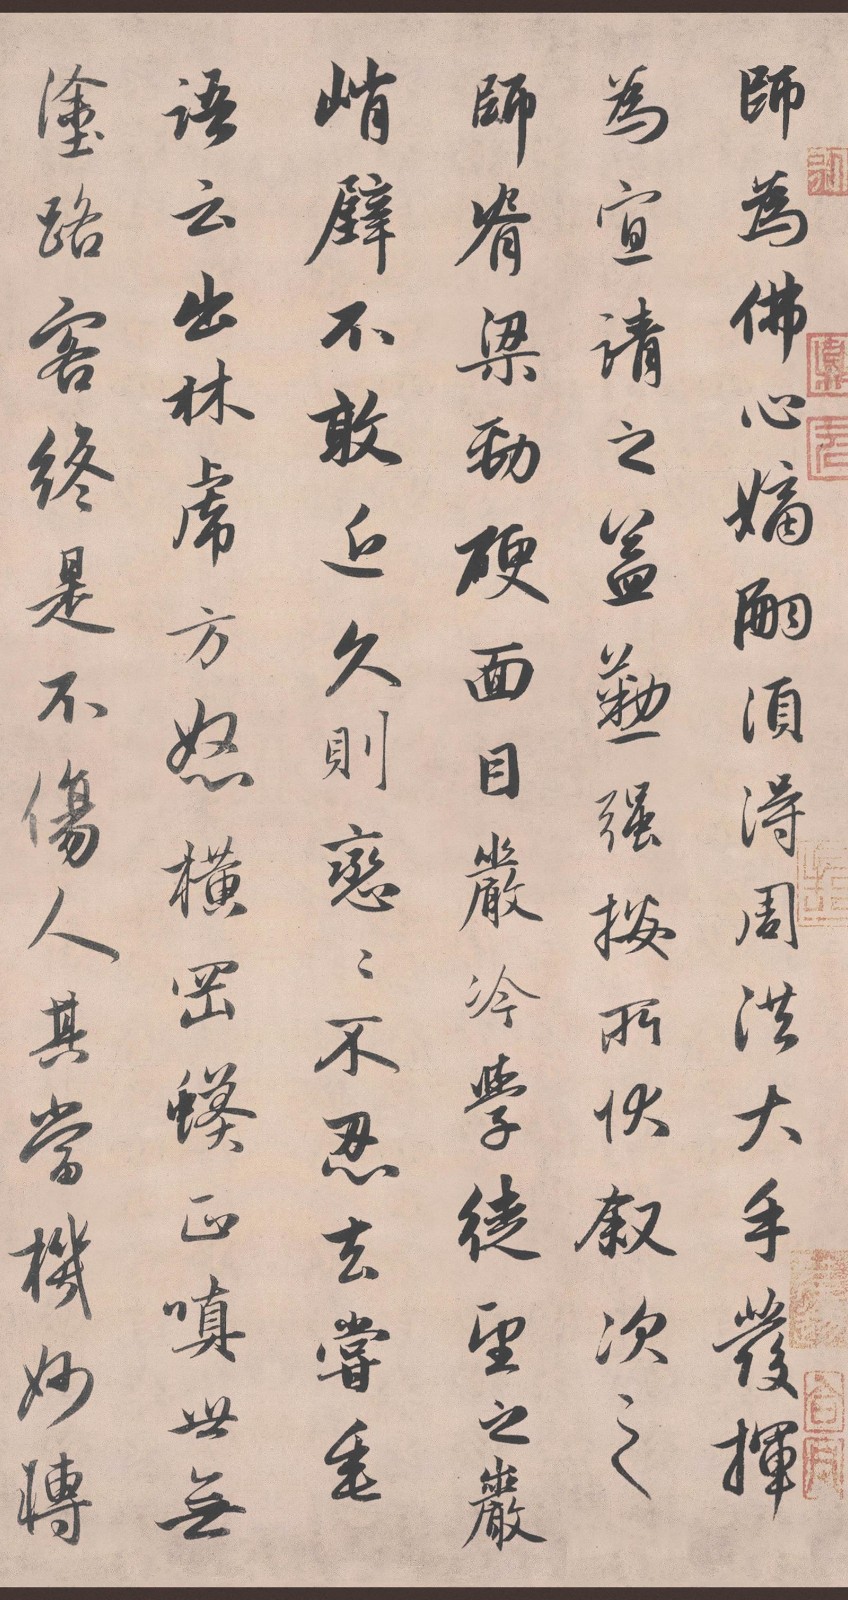 師為佛心嫡嗣須得周洪大手發揮
為宣請之益勤强掇所狀叙次之
師脊梁勁硬面目嚴冷學徒望之嚴
峭壁不敢近久則戀〻不忍去嘗垂
語云出林虎方怒橫岡蟒正嗔世無
塗路客終是不傷人其當機妙轉